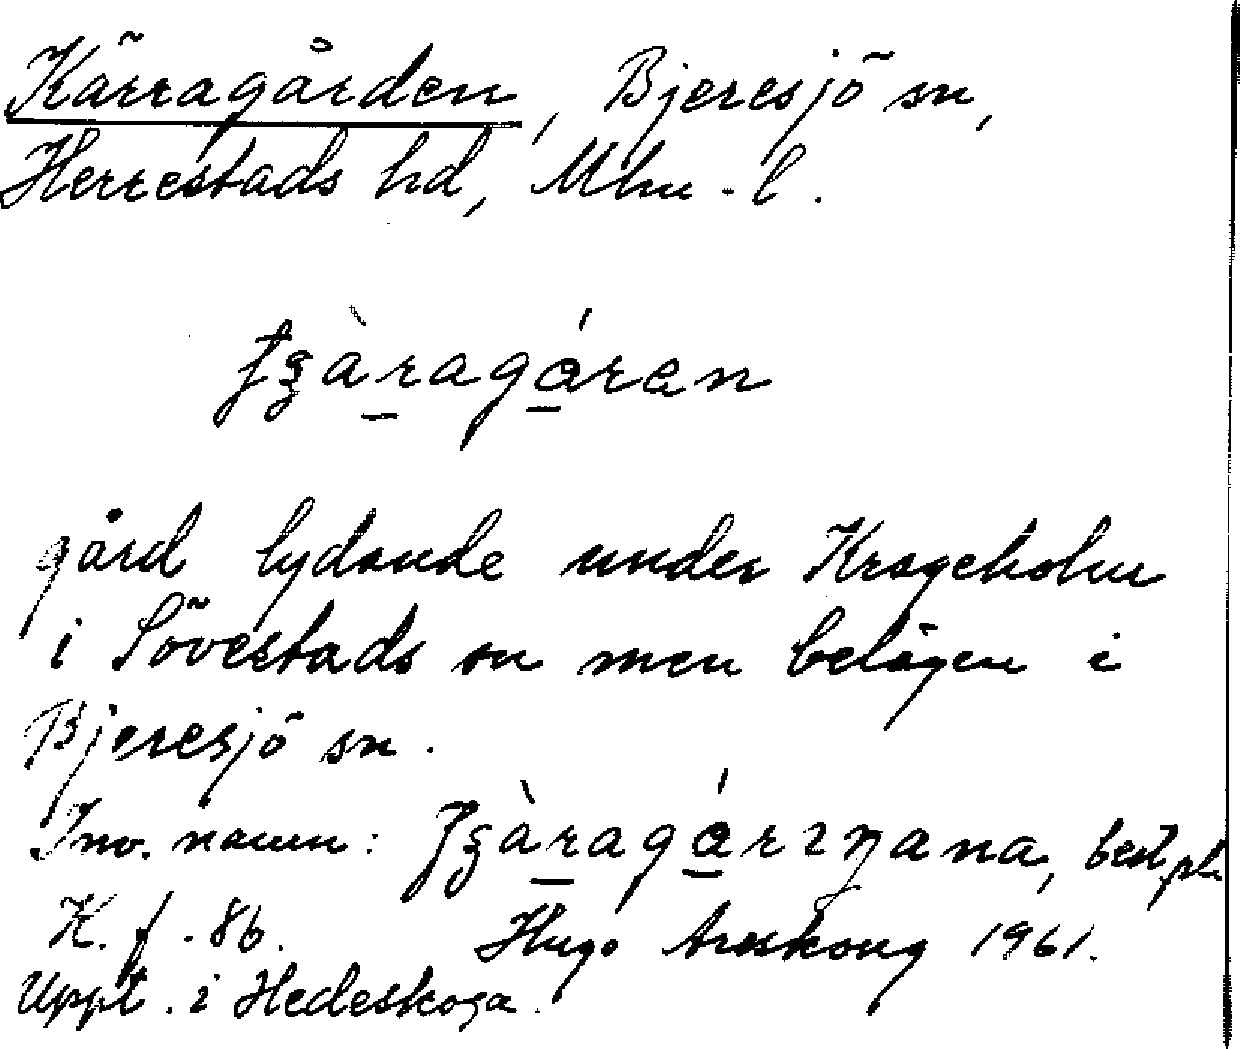 Kärragården, Bjeresjö sn,
Herrestads hd, Mhu-l.
gård lydande under Krageholm
i Sövestads sn men belägen i
Bjeresjö sn.
Inv. namn: best. pl.
K. f. 86. Hugo Areskoug 1961.
Uppt. i Hedeskoga.